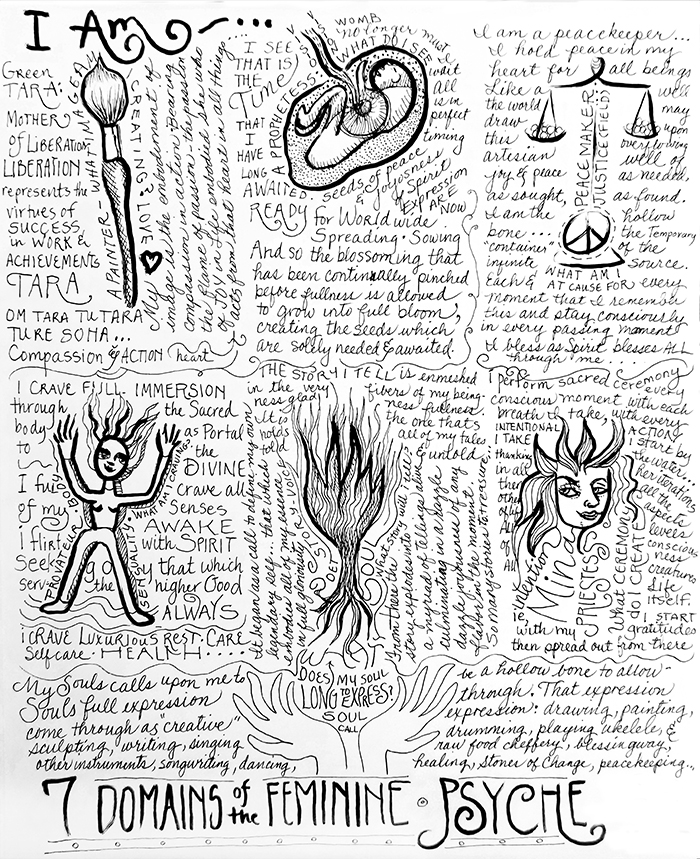 I Am ~ •••
Green
TARA:
Mother
of Liberation
LIBERATION
represents the
virtues of
SUCCESS
in WORK &
ACHIEVEMENTS
TARA
OM TARA TUTARA
TURE SOHA...
Compassion & ACTION (heart
A PAINTER - WHAT IMAGE AM
CREATING? LOVE
My
image is the embodiment of
compassion in action. Bearing
the flame of passion & compassion
of joy in life embodied she who
acts from that heart in all things...
I SEE
THAT IS
THE
TIME
THAT
I
HAVE
LONG
AWAITED.
A PROPHETESS:
WHAT DO I SEE
WOMB
no longer must I
wait
All
is in
perfect
timing
Seeds of peace
& Joyousness
of Spirit
Expression
ARE
NOW
READY for Worldwide
Spreading. Sowing
And so the blossoming that
has been continually pinched
before fullness is allowed
to grow into full bloom,
creating the seeds which
are solely needed & awaited.
I am a peacekeeper...
I hold peace in my
heart for all beings
Like a well
the world may
draw upon
this overflowing
artesian well of
joy & peace as needed,
as sought, as found.
I am the hollow
bone... the Temporary
"container" of the
infinite Source.
PEACE MAKER
JUSTICE (FIELD):
WHAT AM I
AT CAUSE FOR
Each & every
moment that I remember
this and stay consciously
in every passing moment
I bless as Spirit blesses ALL
through me....
I CRAVE FULL IMMERSION
through the Sacred
body as Portal
to the
DIVINE
I crave all
of my Senses
AWAKE
I flirt with SPIRIT
Seek that which
serv the higher Good
ALWAYS
BODY
SENSUALITY:
WHAT AM I CRAVING?
I CRAVE Luxurious REST. CARE
Selfcare. HEALTH.....
THE STORY I TELL is enmeshed
in the very fibers of my being-
ness gladly ness fullness.
It is the one that
holds all of my tales
told untold
It began as a call to define my own
legendary self... that which
embodies all of my essence
in full glory
From there the story
story explodes into
a myriad of telling
culminating in a dazzle
dazzle of joyousness of any
fitting in the moment
So many stories to treasure.
I perform sacred ceremony
conscious moment with each
breath I take, with every
INTENTIONAL ACTION
I TAKE I start by
thanking the water...
in all
Mind
PRIESTESS
What CEREMONY
do I CREATE
levels
conscious
ness
creation,
Life
itself.
I START
ie, gratitude
with my
then spread out from there
DOES MY SOUL
LONG TO EXPRESS?
SOUL
CALL
My Souls calls upon me to
Souls full expression
come through as "creative"
sculpting, writing, singing
other instruments, songwriting, dancing,
be a hollow bone to allow
through. That expression
expression: drawing, painting,
drumming, playing ukelele, &
raw food cheffery, blessingway,
healing, Stones of Change, peacekeeping...
7 DOMAINS of the FEMININE • PSYCHE